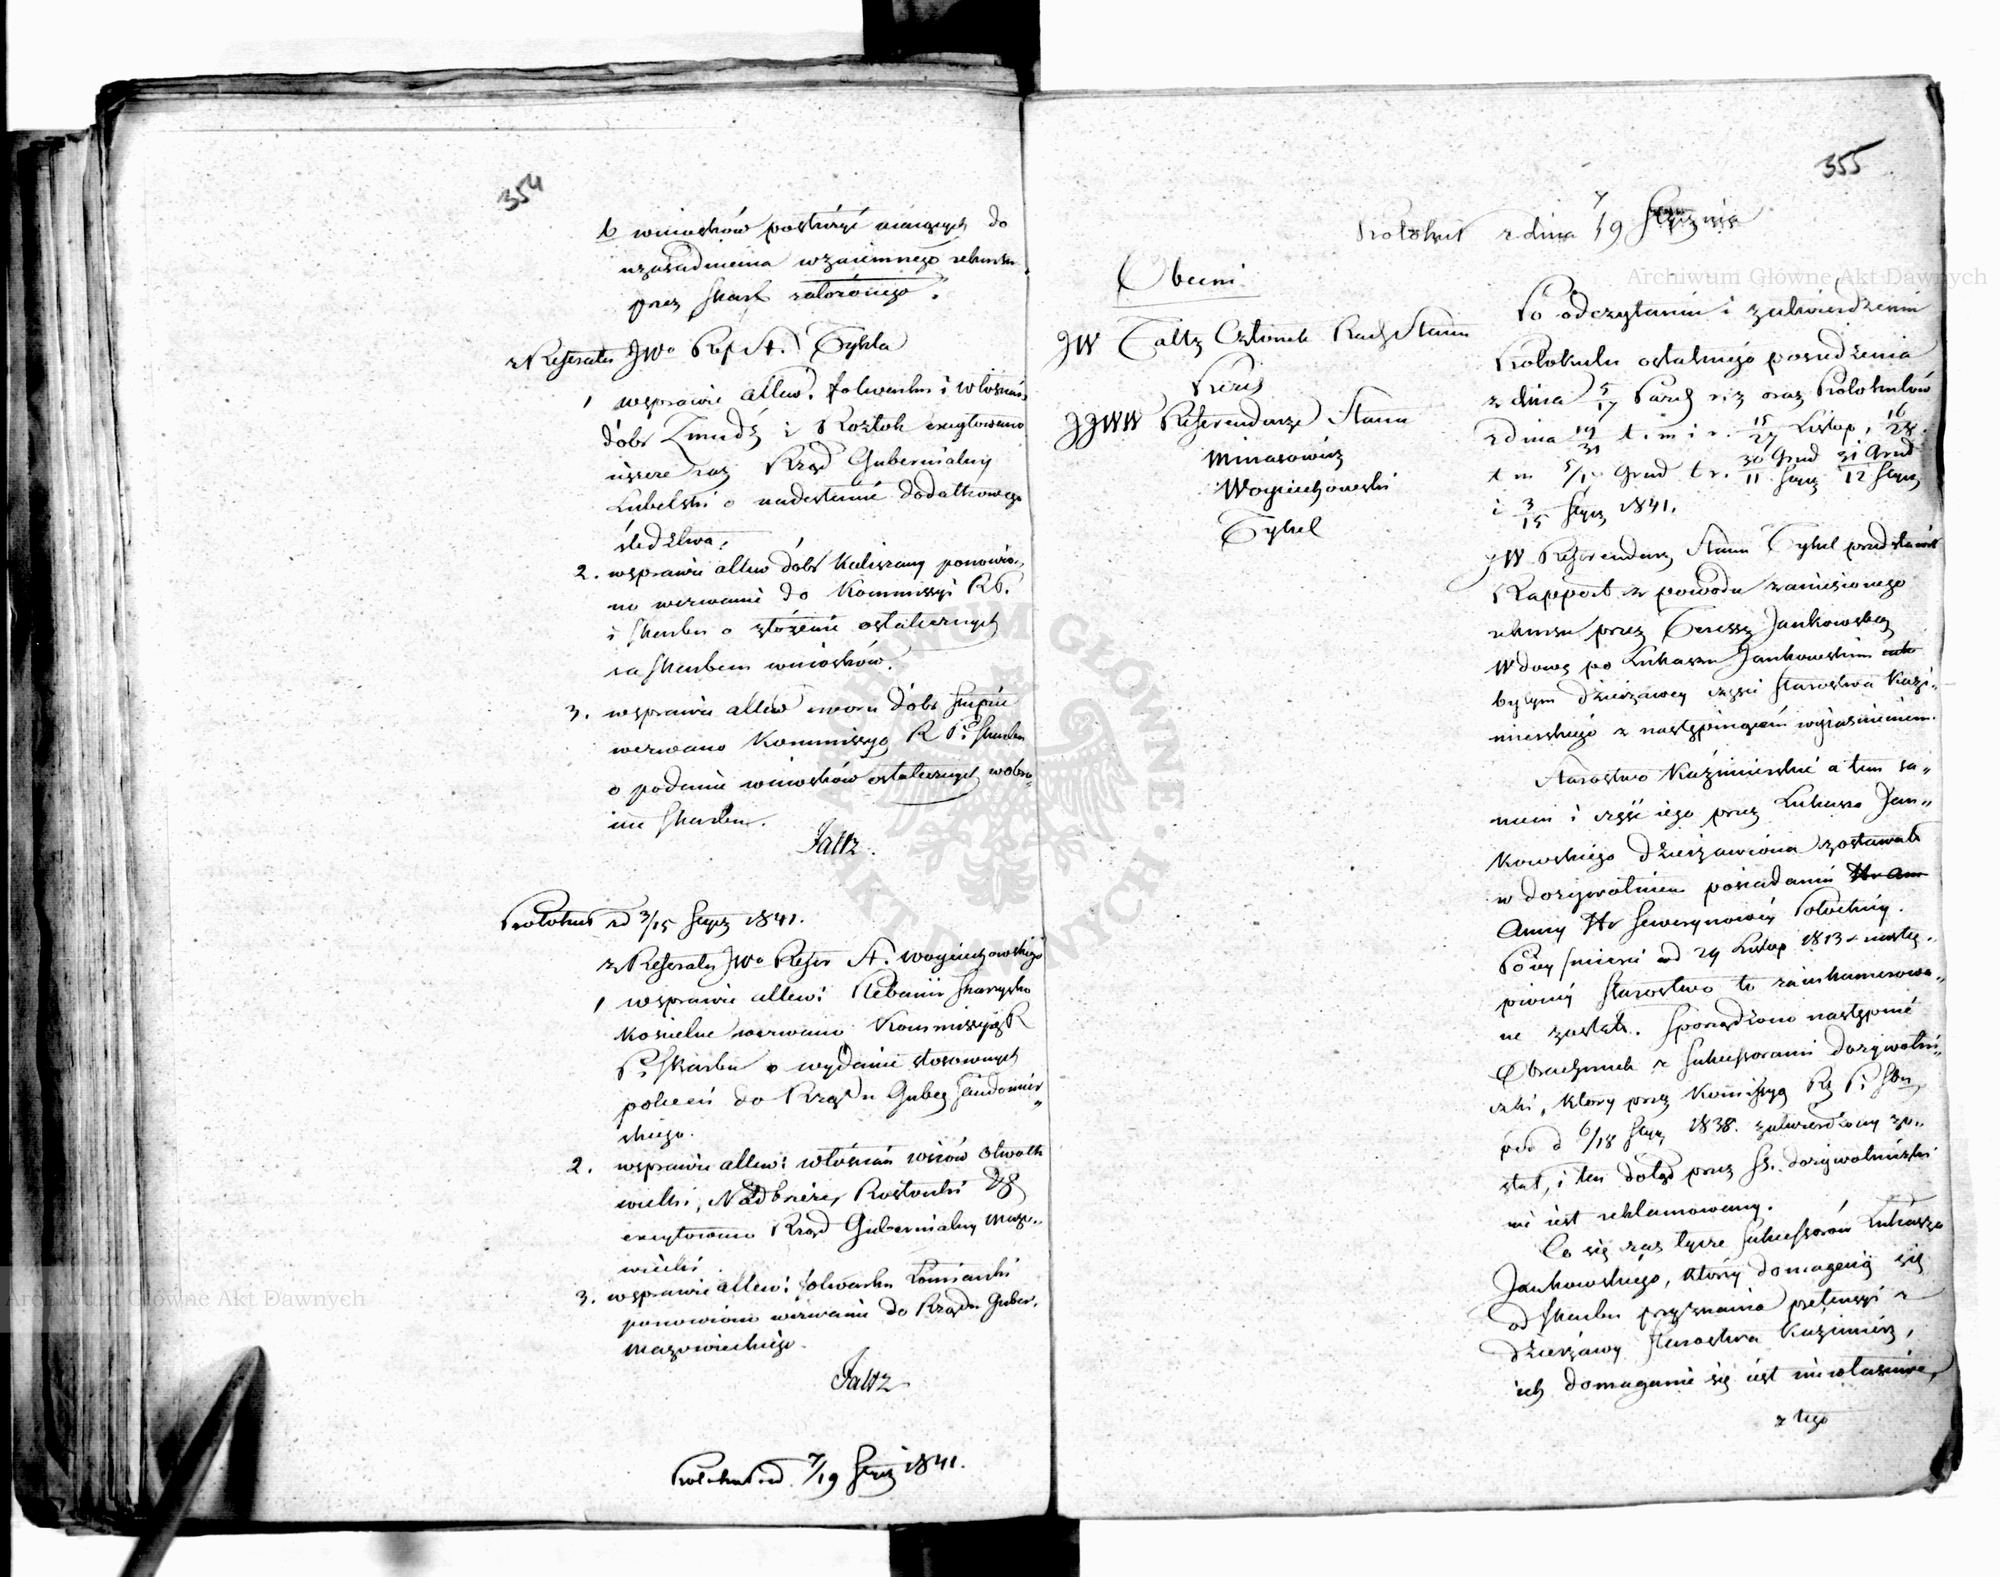 354
b wniosków posłużyć mających do
uzasadnienia wzaiemnego rekursu
przez Skarb założonego.
z Referatu JWo Ref St. Tykla
1 wsprawie allew. folwarku i włościan
dóbr Żmudź i Roztok excytowano
ieszcze raz Rząd Gubernialny
Lubelski o nadesłanie dodatkowego
śledztwa.
2. wsprawie allew dóbr Kaliszany ponowio„
no wezwanie do Kommissyi RP.
i Skarbu o złożenie ostatecznych
za Skarbem wniosków.
3. wsprawie allew dóbr Słupie
wezwano Kommissyą R P. i Skarbu
o podanie wniosków ostatecznych wobro„
nie Skarbu.
Faltz.
Protokuł zd 3/15 Stycz 1841.
z Referatu JWo Refer St. Woyciechowskiego
1 wsprawie allew: Plebanii Skaryska
Kościelne wezwano Kommissyią R
P. i Skarbu o wydanie stosownych
poleceń do Rządu Guber Sandomier„
skiego.
2. wsprawie allew: włościan wsiów Otwock
wielki, Nadbrzeż, Rostanki &
excytowano Rząd Gubernialny Mazo„
wiecki.
3. wsprawie allew: folwarku Łomianki
ponowiono wezwanie do Rządu Guber.
Mazowieckiego.
Faltz
Protokuł zd. 7/19 Stycz 1841.
355
Protokuł z dnia 7/19 Stycznia
Obecni
JW Faltz Członek Rady Stanu
Prezes
JJWW Referendarze Stanu
Minasowicz
Woyciechowski
Tykel
Po odczytaniu i zatwierdzeniu
Protokułu ostatniego posiedzenia
z dnia 5/17 Paźdz r. z oraz Protokułów
z dnia 19/31 t. m i r. 15/27 Listop, 16/28.
t m 5/17 Grud t r. 30 Grud/11 Stycz 31 Grud/12 Stycz
i 3/15 Stycz 1841.
JW Referendarz Stanu Tykel przedstawił
Rapport z powodu zaniesionego
rekursu przez Teressę Jankowską
Wdowę po Łukaszu Jankowskim
byłym dzierżawcy części Starostwa Kazi„
mierskiego z następuiącém wyiaśnieniem.
Starostwo Kazimierskie a tem sa„
mem i część iego przez Łukasza Jan„
kowskiego dzierżawiona zostawało
w dożywotniem posiadaniu Hr Ann
Anny Hr Sewerynowéy Potockiéy.
Po iéy śmierci od 29 Listop 1813 r nastą„
pionéy Starostwo to zainkamerowa„
ne zostało. Sporządzono następnie
Obrachunek z Sukcessorami dożywotni„
czki, który przez Kommissyą Rz P. i Skar.
pod d 6/18 Stycz 1838. zatwierdzony zo„
stał, i ten dotąd przez SS. dożywotniczki
nie iest reklamowany.
Co się zaś tycze Sukcessorów Łukasza
Jankowskiego, którzy domagają się
od Skarbu przyznania pretensyi z
dzierżawy Starostwa Kazimierz,
ich domaganie się iest niewłaściwe,
z tego